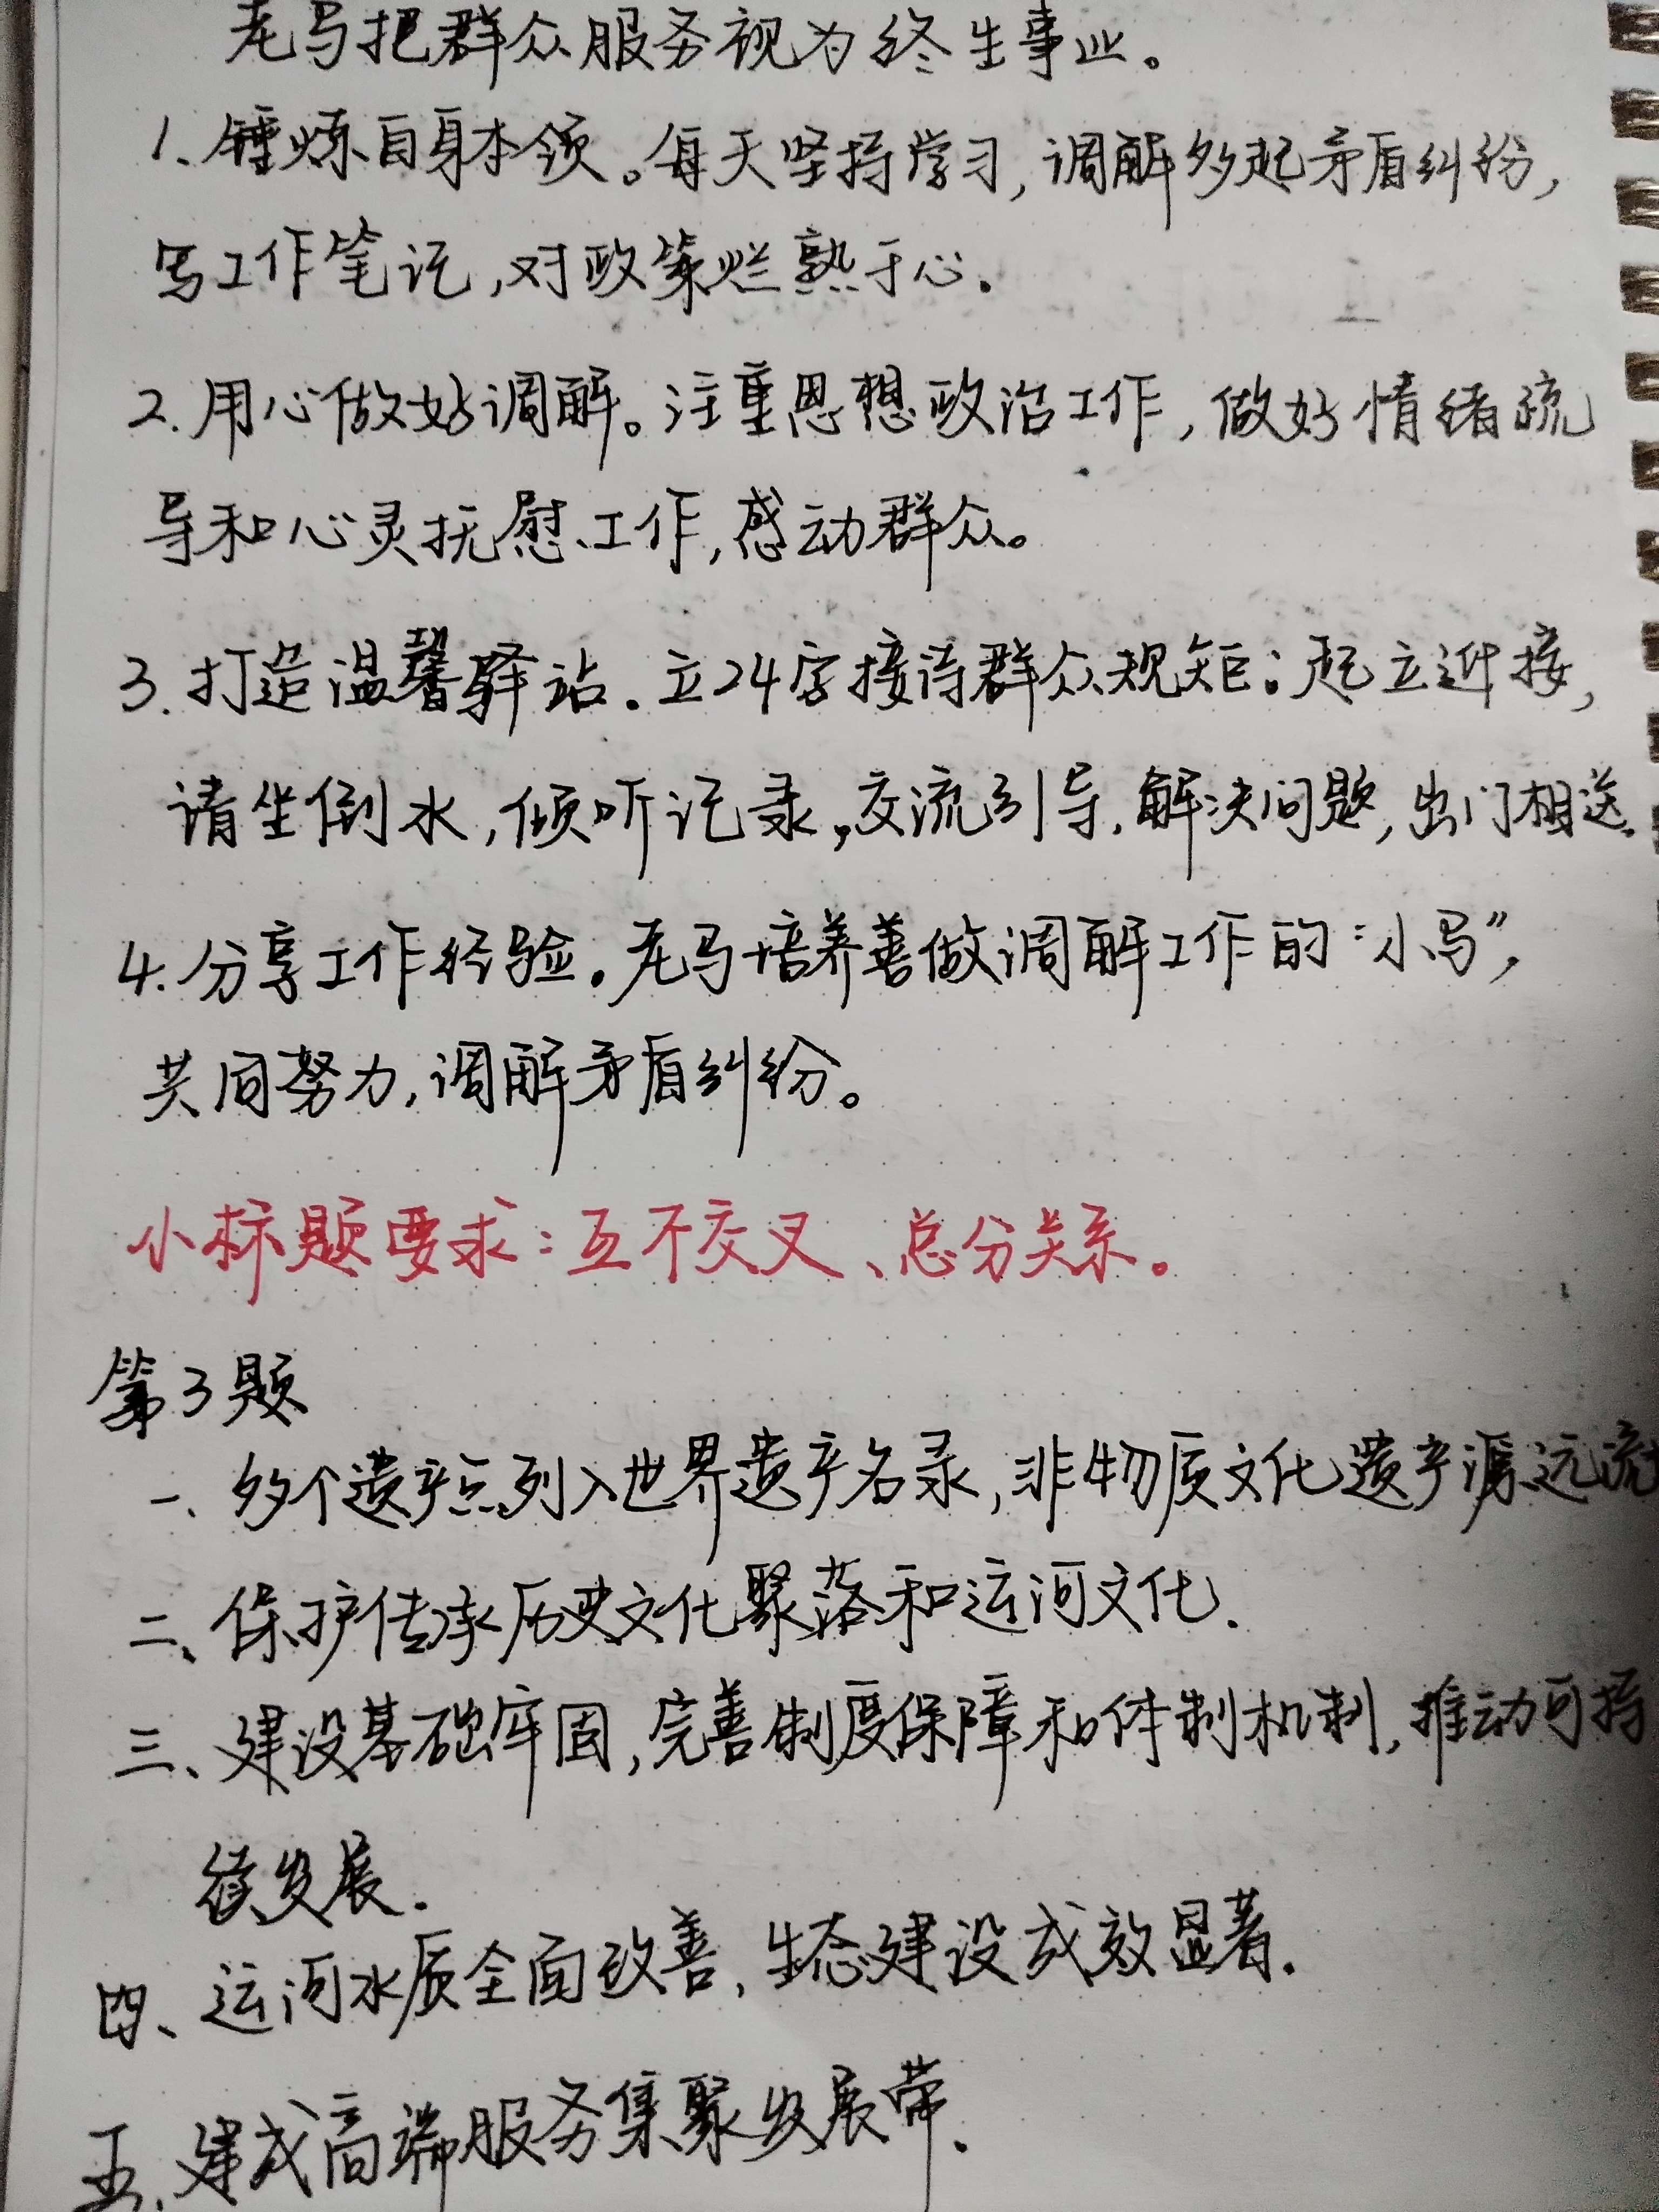 老马把群众服务视为终生事业。
1、锤炼自身本领。每天坚持学习,调解多起矛盾纠纷,
写工作笔记,对政策烂熟于心.
2.用心做好调解。注重思想政治工作,做好情绪疏
导和心灵抚慰工作,感动群众。
3.打造温馨驿站.立24字接待群众规矩:起立迎接,
请坐倒水,倾听记录,交流引导,解决问题,出门相送.
4.分享工作经验.老马培养善做调解工作的“小马”,
共同努力,调解矛盾纠纷。
小标题要求:互不交叉、总分关系。
第3题
一、多个遗产点列入世界遗产名录,非物质文化遗产源远流
二、保护传承历史文化聚落和运河文化.
三、建设基础牢固,完善制度保障和体制机制,推动可持
续发展.
四、运河水质全面改善,生态建设成效显著.
五.建成高端服务集聚发展带.